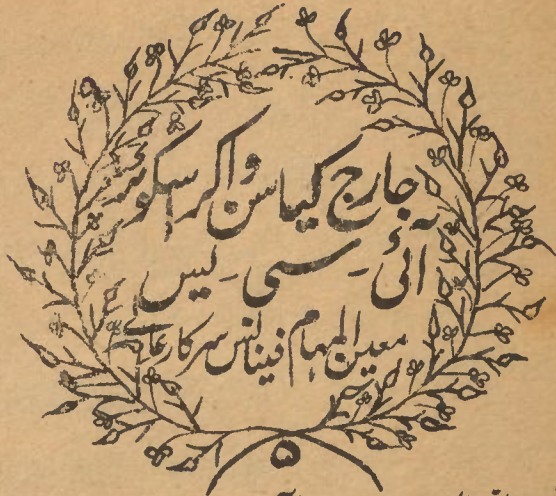 جارج کیاسن واکر اسکوئر
آئی۔ سی۔ یس
معین المہام فینانس سرکار عالی